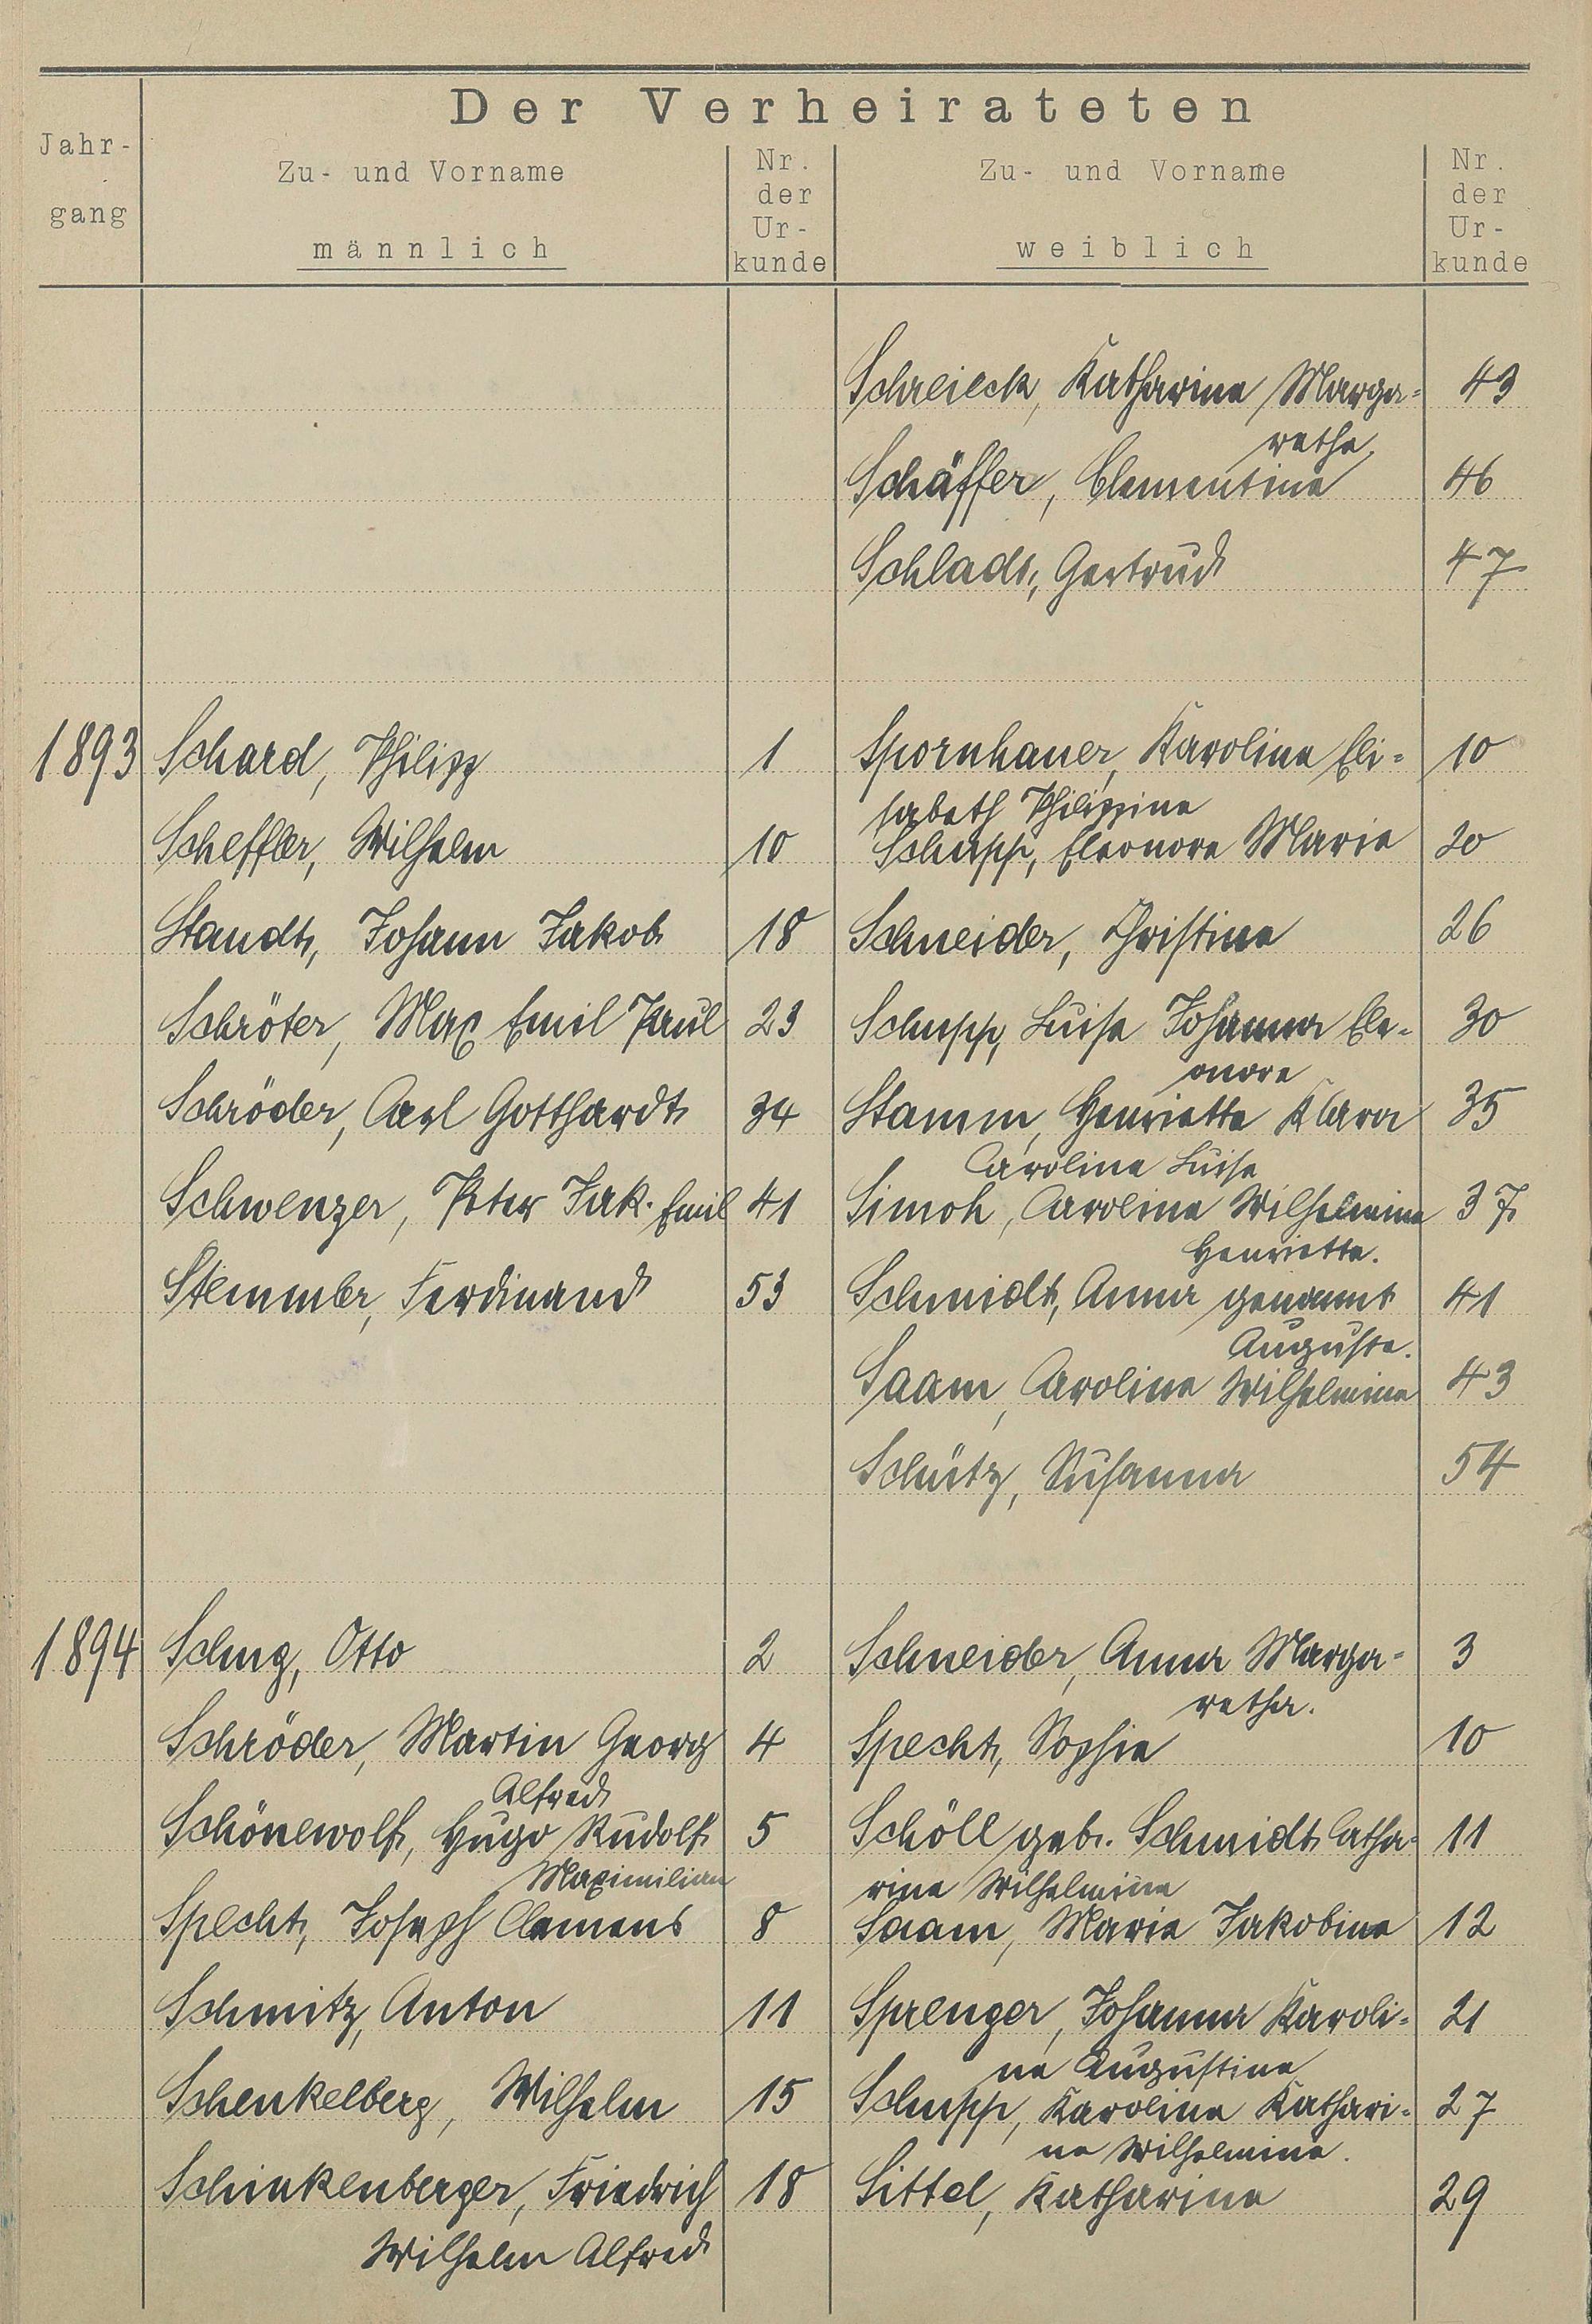 Der Verheirateten
Jahr-
gang
Zu- und Vorname
männlich
Nr.
der
Ur-
kunde
Zu- und Vorname
weiblich
Nr.
der
Ur-
kunde
Schreieck, Katharina Marga= 43
retha.
Schäffer, Clementine 46
Schladt, Gertrud 47
1893 Schard, Philipp 1 Spornhauer, Karoline Eli= 10
sabeth Philippine
Scheffler, Wilhelm 10 Schupp, Eleonore Marie 20
Staudt, Johann Jakob 18 Schneider, Christine 26
Schröter, Max Emil Paul 23 Schupp, Luise Johanna Ele- 30
onore
Schröder, Carl Gotthardt 34 Stamm, Henriette Klara 35
Caroline Luise
Schwenzer, Peter Jak. Emil 41 Simon, Caroline Wilhelmine 37
Henriette.
Stemmler, Ferdinand 53 Schmidt, Anna genannt 41
Auguste.
Saam, Caroline Wilhelmine 43
Schütz, Susanna 54
1894 Schug, Otto 2 Schneider, Anna Marga- 3
retha.
Schröder, Martin Georg 4 Specht, Sophie 10
Alfred
Schönewolf, Hugo Rudolf 5 Schöll geb. Schmidt Catha= 11
Maximilian
rine Wilhelmine
Specht, Joseph Clemens 8 Saam, Marie Jakobine 12
Schmitz, Anton 11 Sprenger, Johanna Karoli= 21
ne Augustine
Schenkelberg, Wilhelm 15 Schupp, Karoline Kathari= 27
ne Wilhelmine.
Schinkenberger, Friedrich 18 Sittel, Katharine 29
Wilhelm Alfred